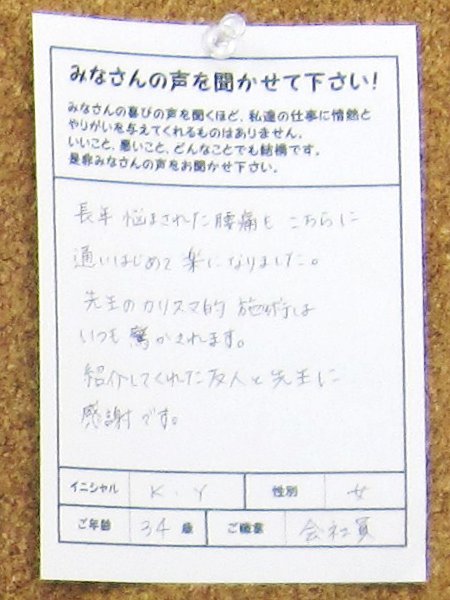 みなさんの声を聞かせて下さい!
みなさんの喜びの声を聞くほど、私達の仕事に情熱と
やりがいを与えてくれるものはありません。
いいこと、悪いこと、どんなことでも結構です。
是非みなさんの声をお聞かせ下さい。
長年 悩まされた腰痛も こちらに
通いはじめて 楽になりました。
先生のカリスマ的 施術は
いつも 驚かされます。
紹介してくれた友人と先生に
感謝です。
イニシャル K.Y 性別 女
ご年齢 34 歳 ご職業 会社員